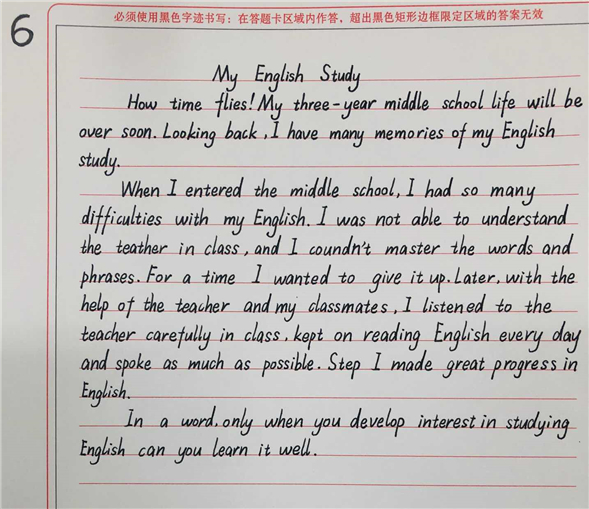 6
必须使用黑色字迹书写；在答题卡区域内作答，超出黑色矩形边框限定区域的答案无效
My English Study
How time flies! My three-year middle school life will be
over soon. Looking back, I have many memories of my English
study.
When I entered the middle school, I had so many
difficulties with my English. I was not able to understand
the teather in class, and I coundn't master the words and
phrases. For a time I wanted to give it up. Later, with the
help of the teacher and my classmates, I listened to the
teacher carefully in class, kept on reading English every day
and spoke as much as possible. Step I made great progress in
English.
In a word, only when you develop interest in studying
English can you learn it well.